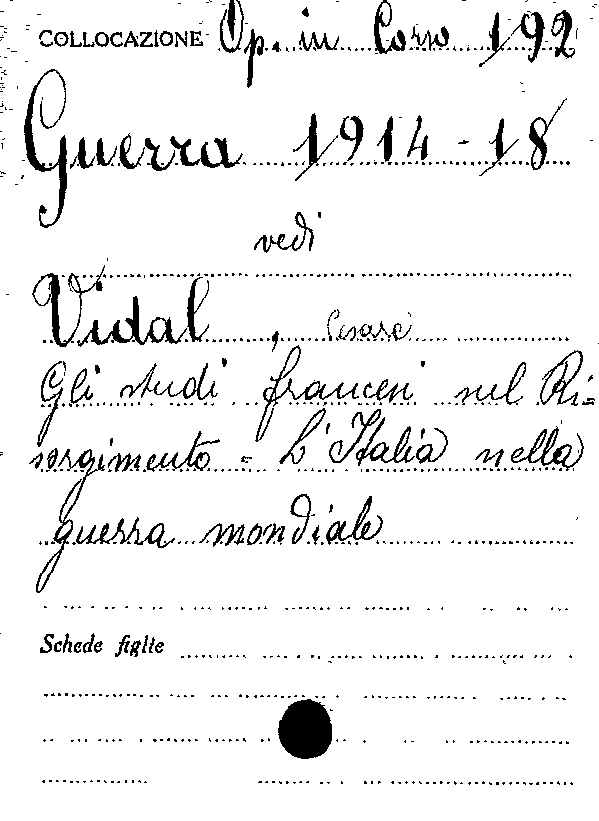 COLLOCAZIONE Op. in Corso 192
Guerra 1914-18
vedi
Vidal, Cesare
Gli studi francesi nel Ri=
sorgimento = L'Italia nella
guerra mondiale
Schede figlie